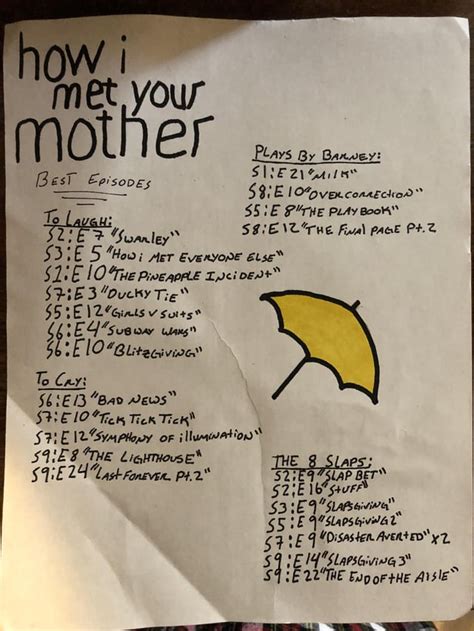 how i
met your
mother
BEST EPISODES
TO LAUGH:
S2:E7 "SWARLEY"
S3:E5 "HOW i MET EVERYONE ELSE"
S1:E10 "THE PINEAPPLE INCIDENT"
S7:E3 "DUCKY TIE"
S5:E12 "GIRLS V SUITS"
S6:E4 "SUBWAY WARS"
S6:E10 "BLITZGIVING"
TO CRY:
S6:E13 "BAD NEWS"
S7:E10 "TICK TICK TICK"
S7:E12 "SYMPHONY OF ILLUMINATION"
S9:E8 "THE LIGHTHOUSE"
S9:E24 "LAST FOREVER PT.2"
PLAYS BY BARNEY:
S1:E21 "MILK"
S8:E10 "OVERCORRECTION"
S5:E8 "THE PLAYBOOK"
S8:E12 "THE FINAL PAGE PT.2
THE 8 SLAPS:
S2:E9 "SLAP BET"
S2:E16 "STUFF"
S3:E9 "SLAPSGIVING"
S5:E9 "SLAPSGIVING 2"
S7:E9 "DISASTER AVERTED" x2
S9:E14 "SLAPSGIVING 3"
S9:E22 "THE END OF THE AISLE"